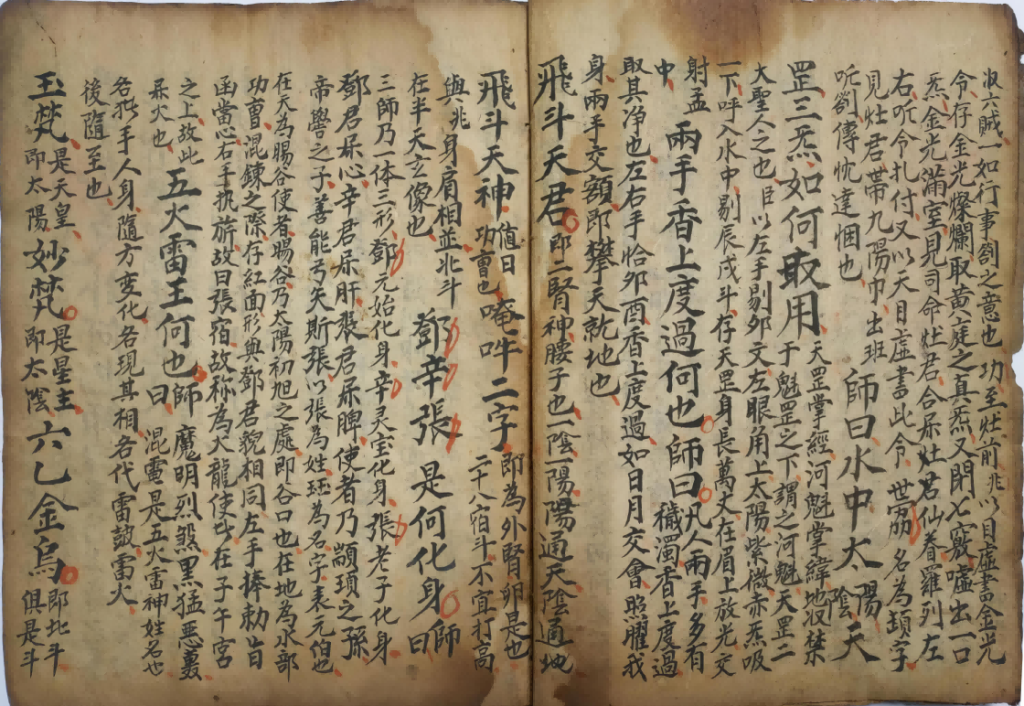 收六賊一如行事劄之意也功至灶前兆以目虛書金光
令存金光燦爛取黃庭之真炁又閉七竅噓出一口
炁金光滿室見司命灶君合屎灶君仙眷羅列左
右听令扎付又以天目虛書此令世㓜名為頊字
見灶君帶九陽巾出班 師曰水中太陽陰天
听劄傳忱達悃也
罡三炁如何取用 天罡掌經河魁掌緯地収禁
于魁罡之下謂之河魁天罡二
大聖人之也臣以左手剔夘文左眼角上太陽紫微赤炁吸
一下呼入水中剔辰戌斗存天罡身長萬丈在眉上放光交
射盂 兩手香上度過何也師曰凡人兩手多有
中 穢濁香上度過
取其淨也左右手恰夘酉香上度過如日月交會照臞我
身兩手交額即攀天就地也
飛斗天君即二腎神腰子也一陰一陽陽通天陰通地
飛斗天神值日功曹也唵吽二字即為外腎卵是也
二十八宿斗不宜打高
與兆身肩相並北斗
在半天玄像也 鄧辛張是何化身師曰
三師乃一体三形鄧元始化身辛灵宝化身張老子化身
鄧君屎心辛君屎肝張君屎脾使者乃顓頊之孫
帝嚳之子善能弓矢斯張以張為姓珏為名字表元伯也
在天為賜谷使者賜谷乃太陽初旭之處即谷口也在地為水部
功曹混鍊之際存紅面形與鄧君貌相同左手捧勅旨
函當心右手执旂故曰張宿故称為火龍使者在子午宮
之上故此 五火雷王何也師曰魔明烈煞黑猛惡裏
屎火也 混電是五火雷神姓名也
各披手人身隨方變化各現其相各代雷鼓雷火
後隨至也
玉梵是天皇即太陽妙梵是星主即太陰六乙金烏即北斗俱是斗